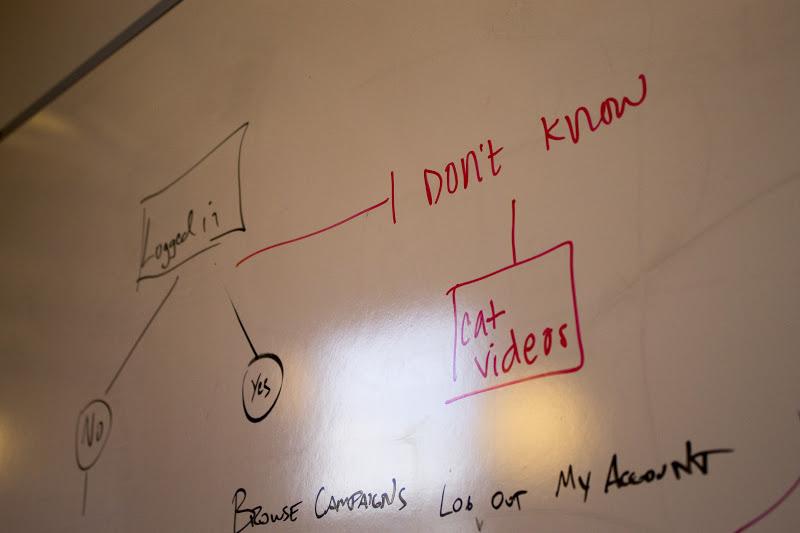 I DON'T KNOW
Logged in
cat
videos
Yes
No
BROWSE CAMPAIGNS LOG OUT MY ACCOUNT